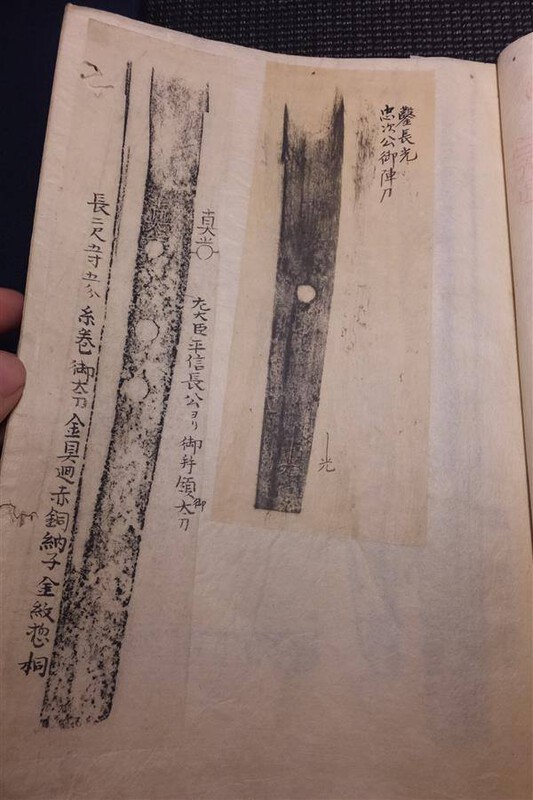 鑿長光
忠次公御陣刀
光
真光
大臣平信長公ヨリ御拝領御太刀
長二尺五寸五分 糸巻御太刀金具廻赤銅納子金紋惣桐